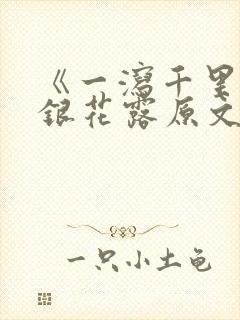 《一瀉千里
銀花露原文
一只小土龟